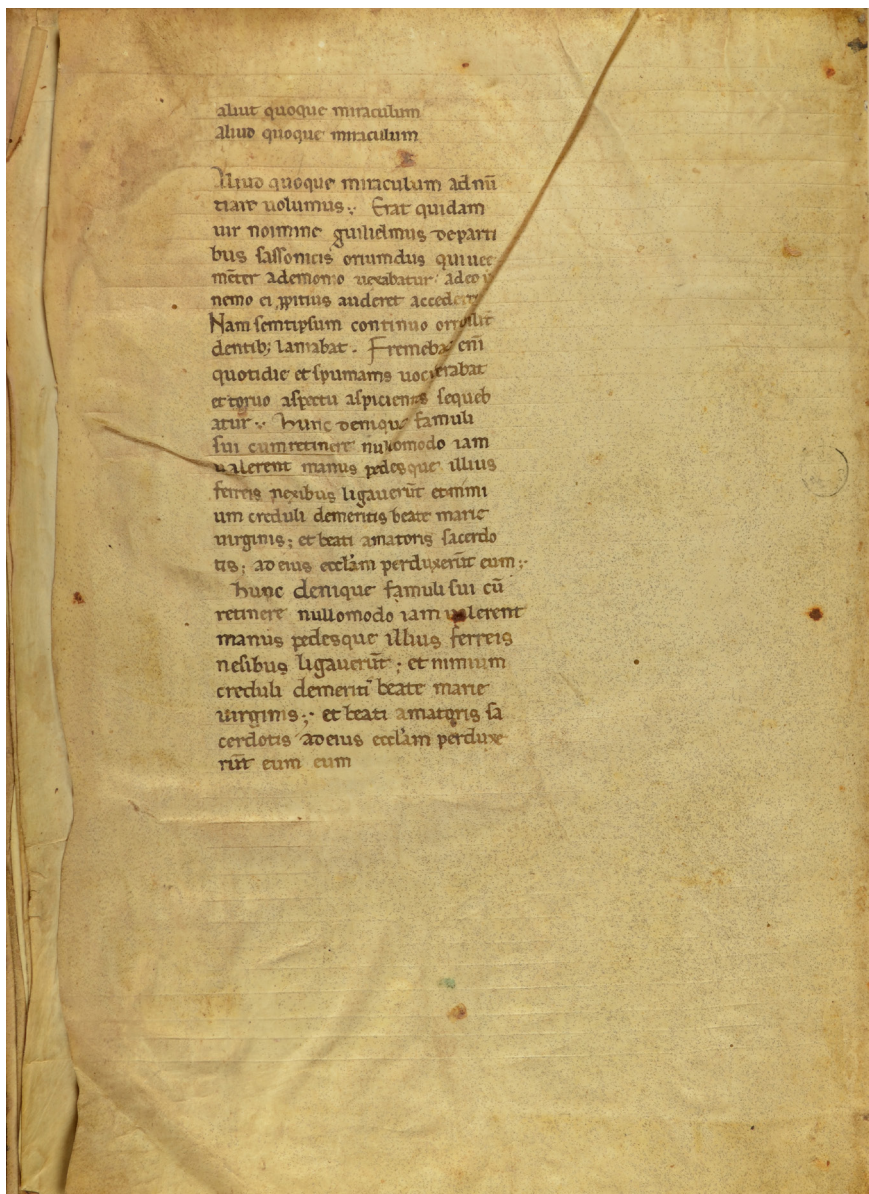 aliut quoque miraculum
aliud quoque miraculum
Aliud quoque miraculum ad nū
tiare uolumus. Erat quidam
uir nomine guilielmus departi
bus sassonicis oriundus qui uee
mēter ademonio uexabatur adeo
nemo ei ꝓpitius auderet accedere
Nam semtipsum continuo
dentib; laniabat. Fremebat eni̅
quotidie et spumans uociferabat
et toruo aspectu aspiciens sequeb
atur. hunc denique famuli
sui cum retinere nullomodo iam
ualerent manus pedesque illius
ferreis nexibus ligauerūt et nimi
um creduli demeritis beate marie
uirginis; et beati amatoris sacerdo
tis; ad eius ecclām perduxerūt eum;
hunc denique famuli sui cū
retinere nullomodo iam ualerent
manus pedesque illius ferreis
nesibus ligauerūt; et nimium
creduli demeriti beate marie
uirginis; et beati amatoris sa
cerdotis ad eius ecclām perduxe
rūt eum eum